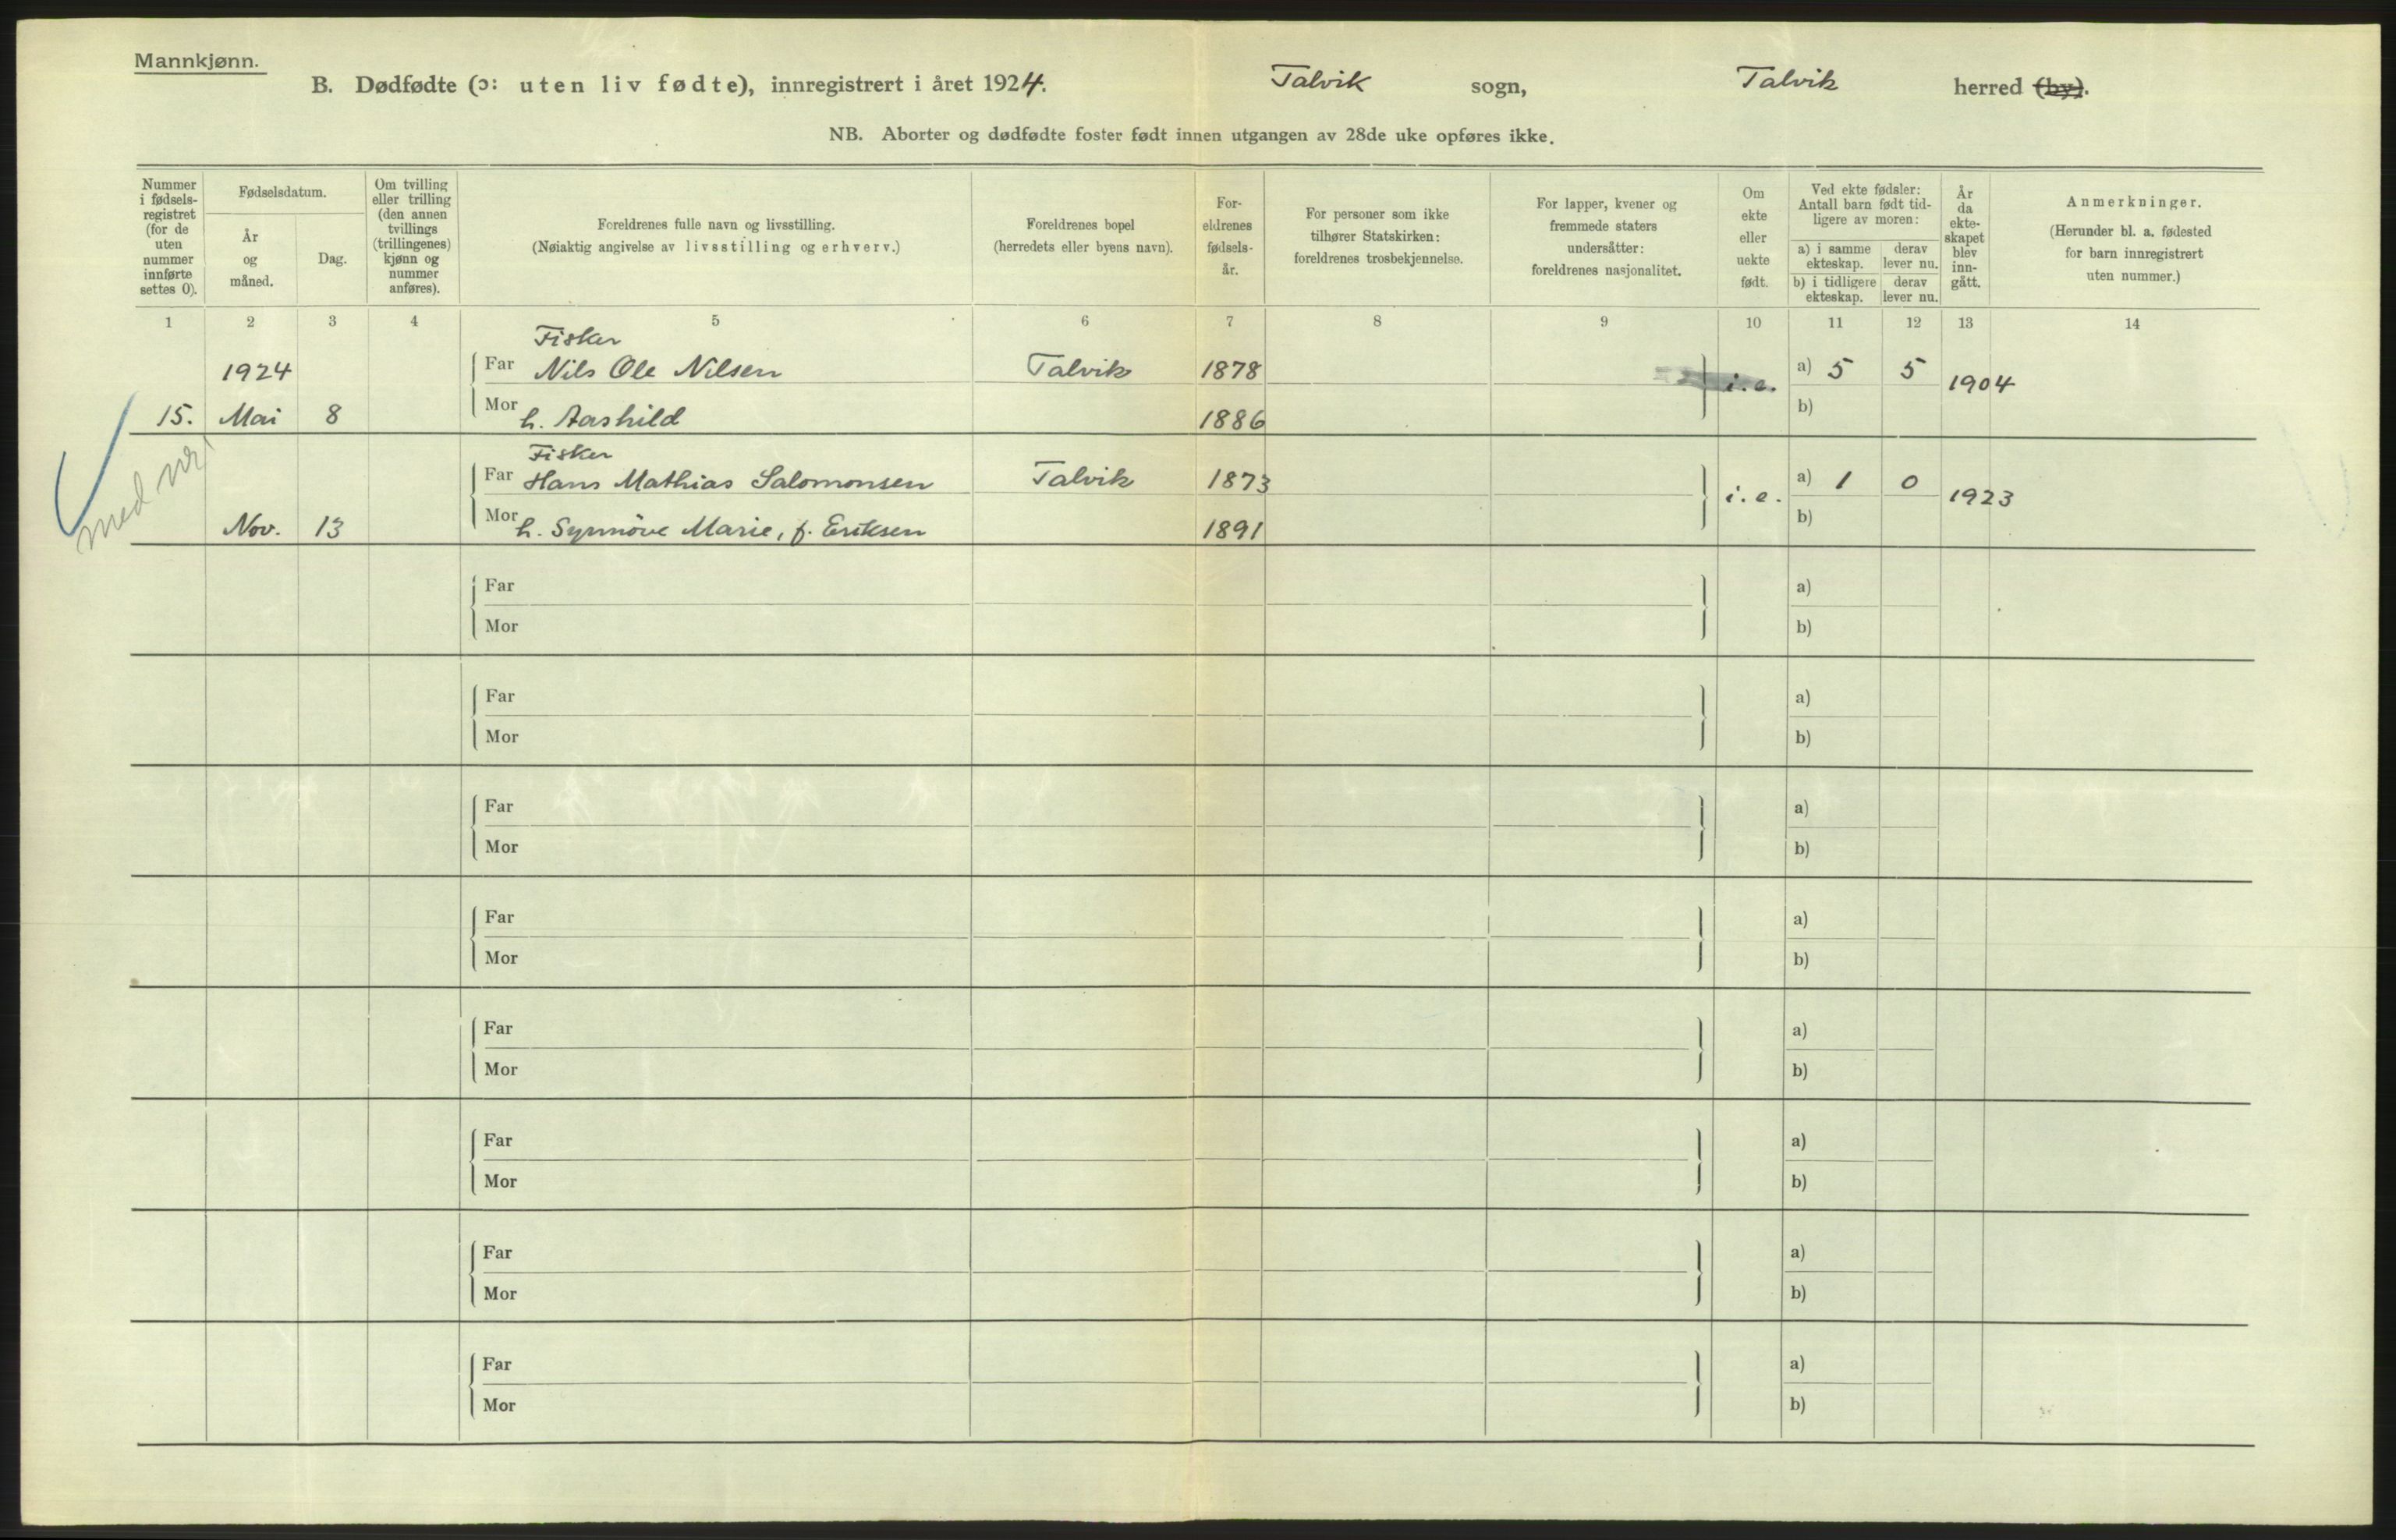 Mannkjønn.
B. Dødfødte (ɔ: uten liv fødte), innregistrert i året 1924. Talvik sogn, Talvik herred (by).
NB. Aborter og dødfødte foster født innen utgangen av 28de uke opføres ikke.
Nummer i fødsels-registret (for de uten nummer innførte settes 0).
Fødselsdatum.
År og måned.
Dag.
Om tvilling eller trilling (den annen tvillings (trillingenes) kjønn og nummer anføres).
Foreldrenes fulle navn og livsstilling.
(Nøiaktig angivelse av livsstilling og erhverv.)
Foreldrenes bopel
(herredets eller byens navn).
For-eldrenes fødsels-år.
For personer som ikke tilhører Statskirken: foreldrenes trosbekjennelse.
For lapper, kvener og fremmede staters undersåtter: foreldrenes nasjonalitet.
Om ekte eller uekte født.
Ved ekte fødsler: Antall barn født tid-ligere av moren:
a) i samme ekteskap.
derav lever nu.
b) i tidligere ekteskap.
derav lever nu.
År da ekte-skapet blev inn-gått.
Anmerkninger.
(Herunder bl. a. fødested for barn innregistrert uten nummer.)
1 2 3 4 5 6 7 8 9 10 11 12 13 14
Fisker
1924 Far Nils Ole Nilsen Talvik 1878 i. e. a) 5 5 1904
15. Mai 8 Mor h. Aashild 1886 b)
med nr
Fisker
Far Hans Mathias Salomonsen Talvik 1873 i. e. a) 1 0 1923
Nov. 13 Mor h. Synnöve Marie, f. Eriksen 1891 b)
Far a)
Mor b)
Far a)
Mor b)
Far a)
Mor b)
Far a)
Mor b)
Far a)
Mor b)
Far a)
Mor b)
Far a)
Mor b)
Far a)
Mor b)